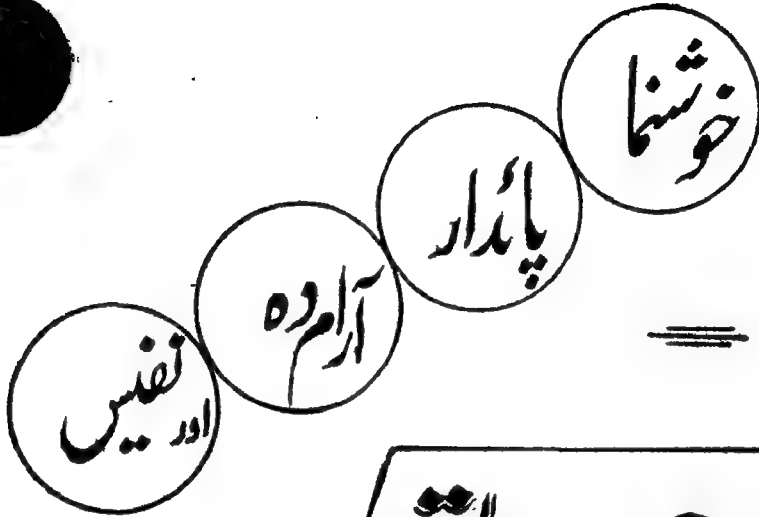 خوشنما
پائدار
آرام دہ
اور نفیس